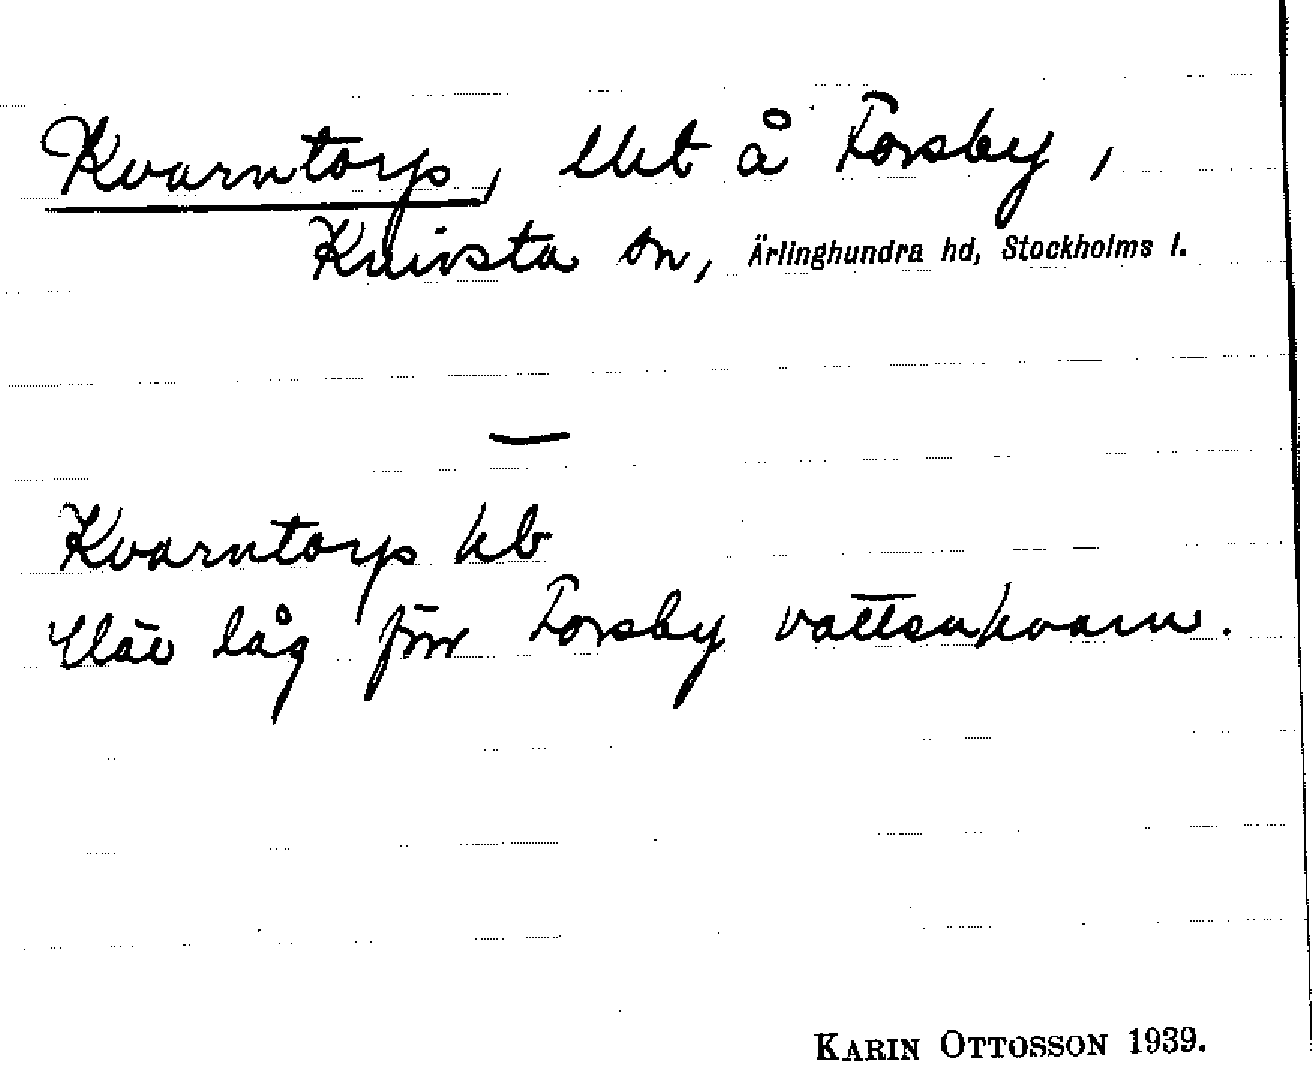 Kvarntorp, lht å Forsby,
Knivsta sn, Ärlinghundra hd, Stockholms l.
—
Kvarntorp hb
Där låg förr Forsby vattenkvarn.
KARIN OTTOSSON 1939.